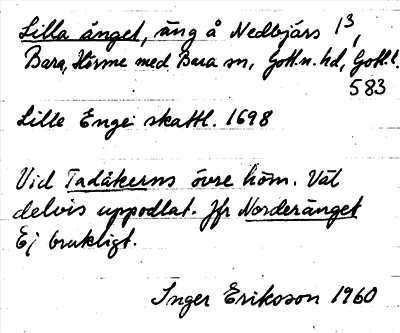 Lilla änget, äng å Nedbjärs 1³,
Bara, Hörsne med Bara sn, Gotl.n. hd, Gotl.l.
583
Lille Enge skattl. 1698
Vid Tadåkerns övre hörn. Våt
delvis uppodlat. Jfr Norderänget
Ej brukligt.
Inger Erikson 1960